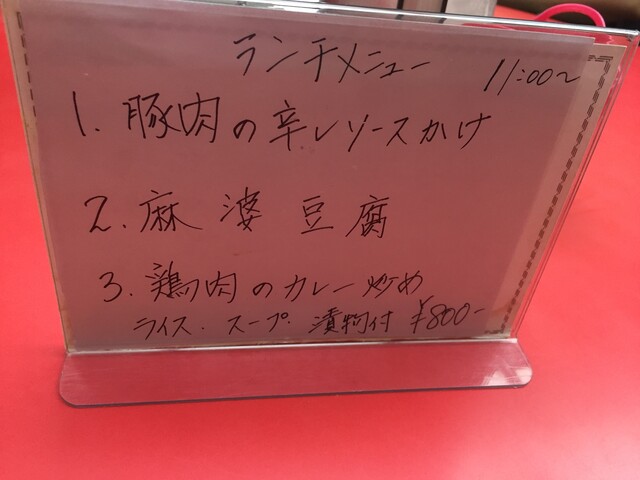 ランチメニュー 11:00~
1. 豚肉の辛レソースかけ
2. 麻婆豆腐
3. 鶏肉のカレー炒め
ライス. スープ. 漬物付 ¥800-